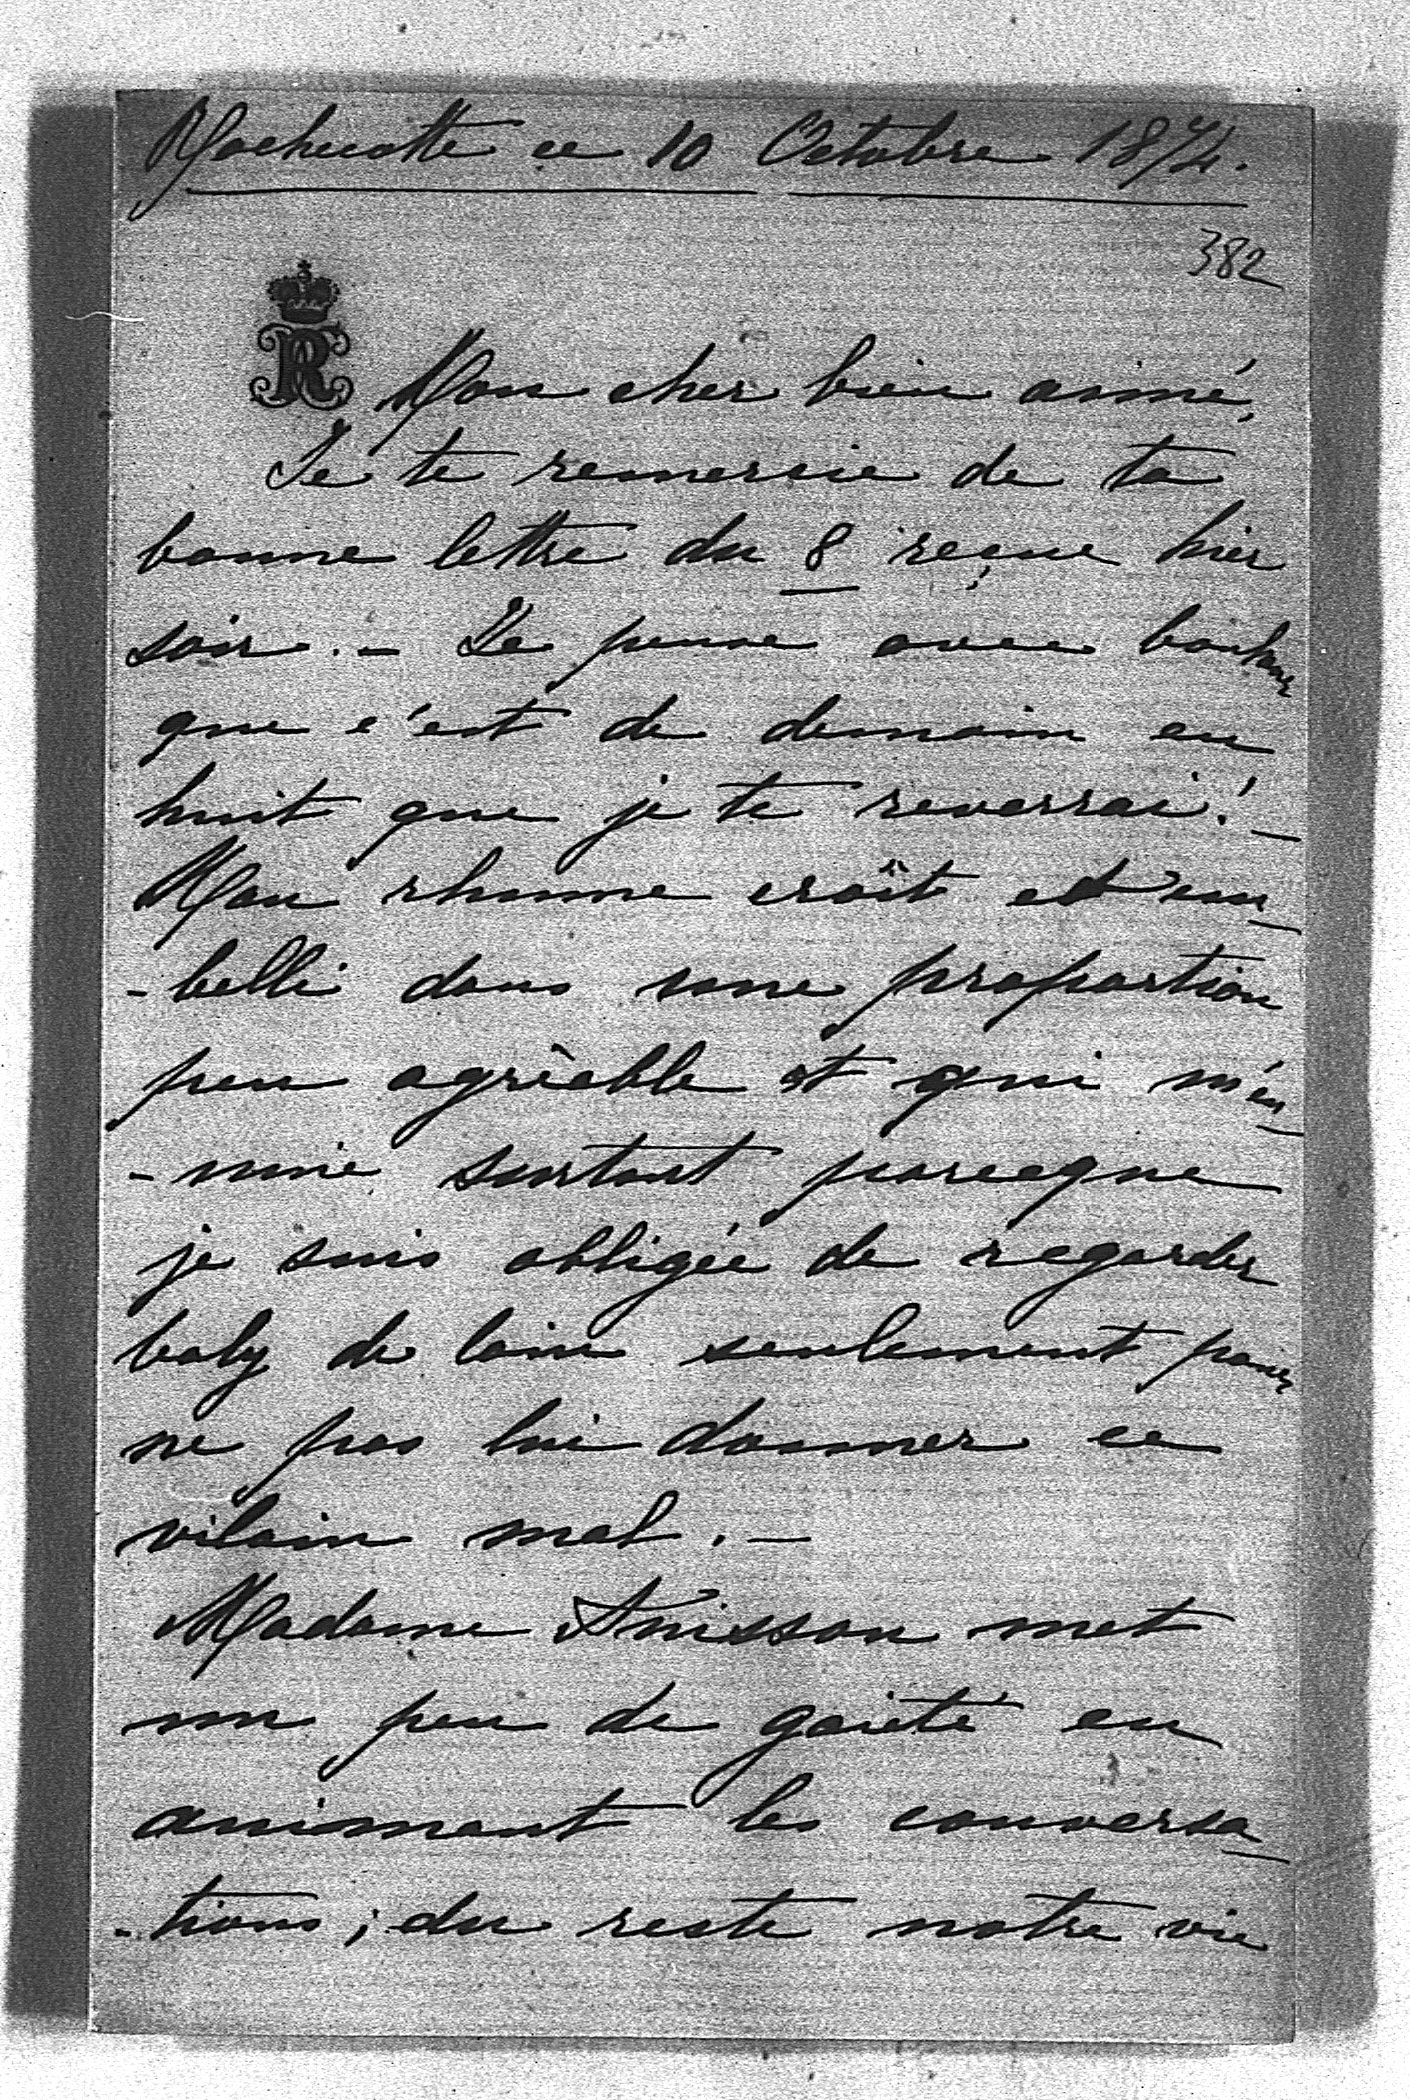 Rochecotte ce 10 Octobre 1874.
382
R
Mon cher bien aimé,
Je te remercie de ta
bonne lettre du 8 reçue hier
soir. – Je pense avec bonheur
que c'est de demain en
huit que je te reverrai! –
Mon rhume croît et em
-belli dans une proportion
peu agrèable et qui m'en
-nuie surtout parceque
je suis obligée de regarder
baby de loin seulement pour
ne pas lui donner ce
vilain mal. –
Madame Anisson met
un peu de gaieté en
animant les conversa
-tions; du reste notre vie